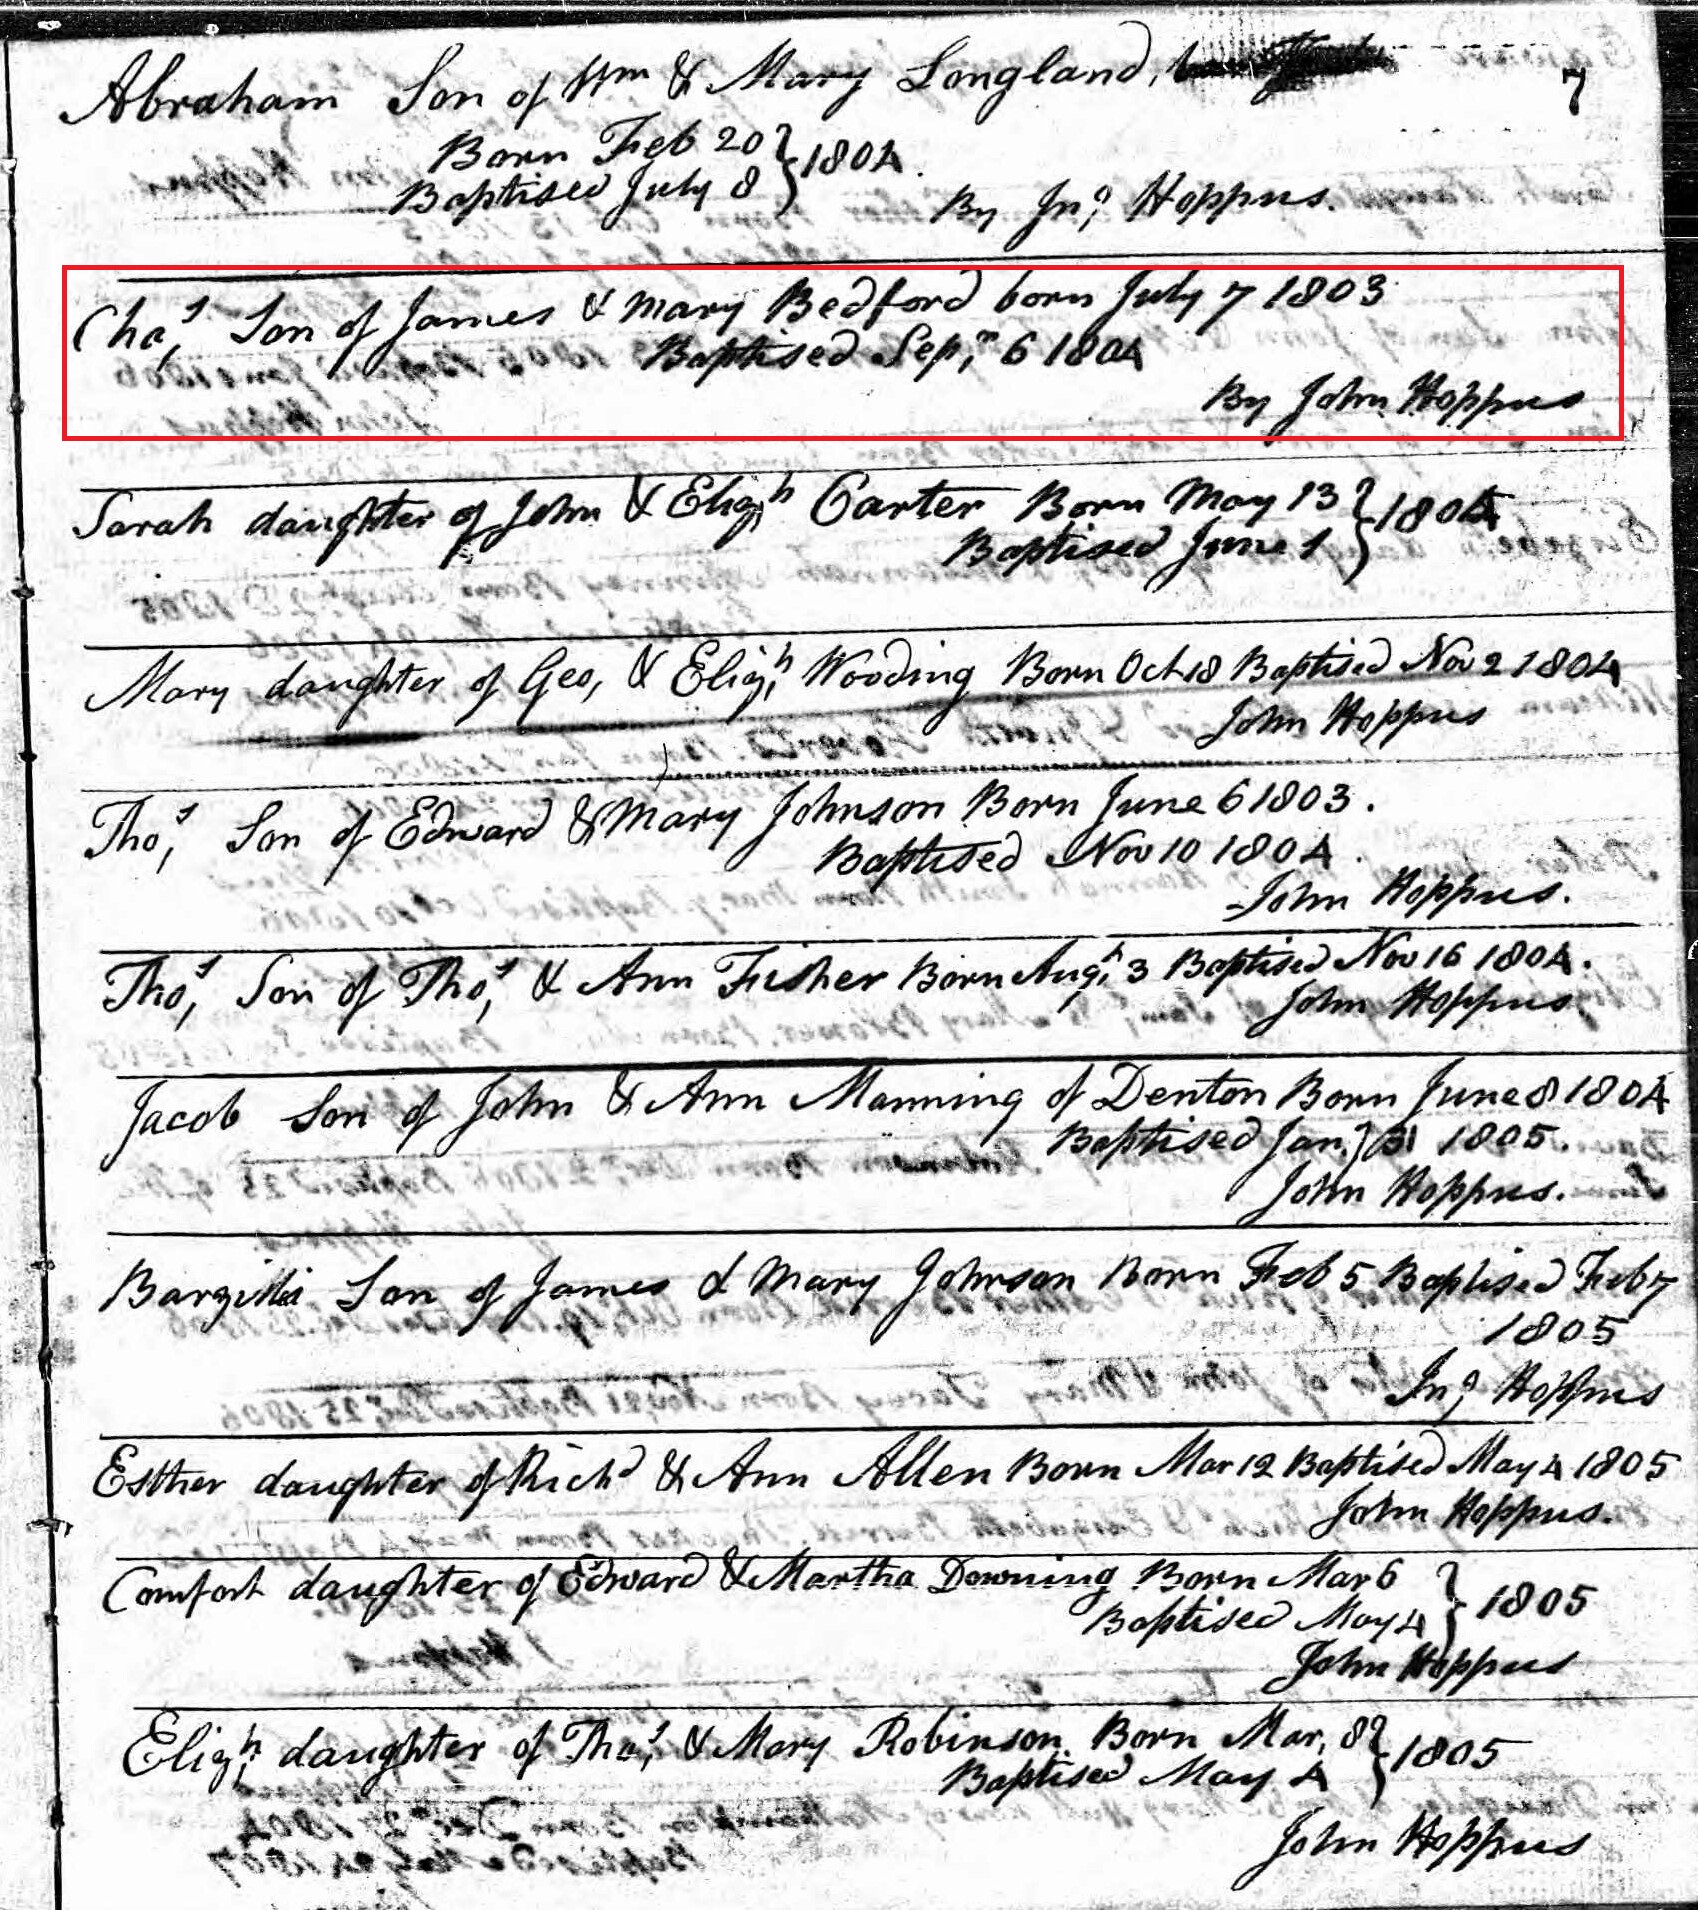 7
Abraham Son of Wm & Mary Longland,
Born Feb 20 } 1804.
Baptised July 8
By Jnº Hoppus.
Chaˢ, Son of James & Mary Bedford born July 7 1803
Baptised Sepᵐ, 6 1804
By John Hoppus
Sarah daughter of John & Elizʰ, Carter Born May 13 } 1804
Baptised June 1
Mary daughter of Geo, & Elizʰ, Wooding Born Oct 18 Baptised Nov 2 1804
John Hoppus
Thoˢ, Son of Edward & Mary Johnson Born June 6 1803.
Baptised Nov 10 1804.
John Hoppus.
Thoˢ, Son of Thoˢ, & Ann Fisher Born Aug, 3 Baptised Nov 16 1804.
John Hoppus
Jacob Son of John & Ann Manning of Denton Born June 8 1804
Baptised Jan, 31 1805.
John Hoppus.
Barzilli Son of James & Mary Johnson Born Feb 5 Baptised Feb 7
1805
Jnº, Hoppus
Esther daughter of Richᵈ & Ann Allen Born Mar 12 Baptised May 4 1805
John Hoppus.
Comfort daughter of Edward & Martha Downing Born Mar 6 } 1805
Baptised May 4
John Hoppus
Elizʰ, daughter of Thoˢ, & Mary Robinson Born Mar, 8 } 1805
Baptised May 4
John Hoppus